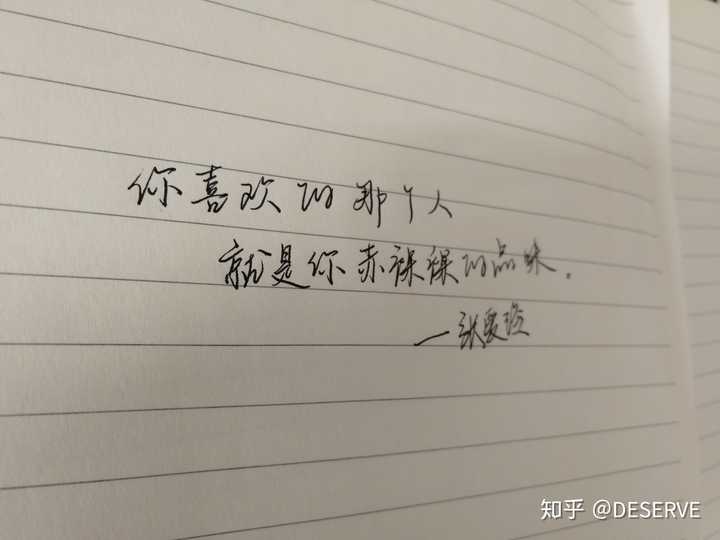 你喜欢的那个人
就是你赤裸裸的品味。
—张爱玲
知乎 @DESERVE